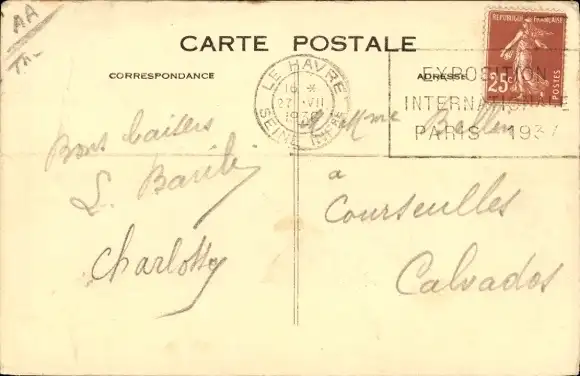 AA
CARTE POSTALE
CORRESPONDANCE
ADRESSE
REPUBLIQUE FRANÇAISE
25c
POSTES
LE HAVRE
16 *
27 VII
SEINE INFRE
EXPOSITION
INTERNATIONALE
PARIS 1937
Bons baisers
Charlotte
Mme
à
Courseulles
Calvados